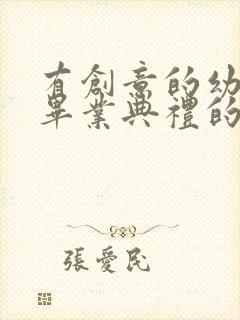 有創意的幼
畢業典禮的
張愛民